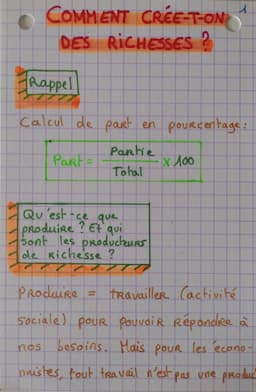 1
COMMENT CRÉE-T-ON
DES RICHESSES ?
Rappel
Calcul de part en pourcentage :
Part = Partie / Total x 100
Qu'est-ce que
produire ? Et qui
sont les producteurs
de richesse ?
PRODUIRE = travailler (activité
sociale) pour pouvoir répondre à
nos besoins. Mais pour les écono-
mistes, tout travail n'est pas une produc